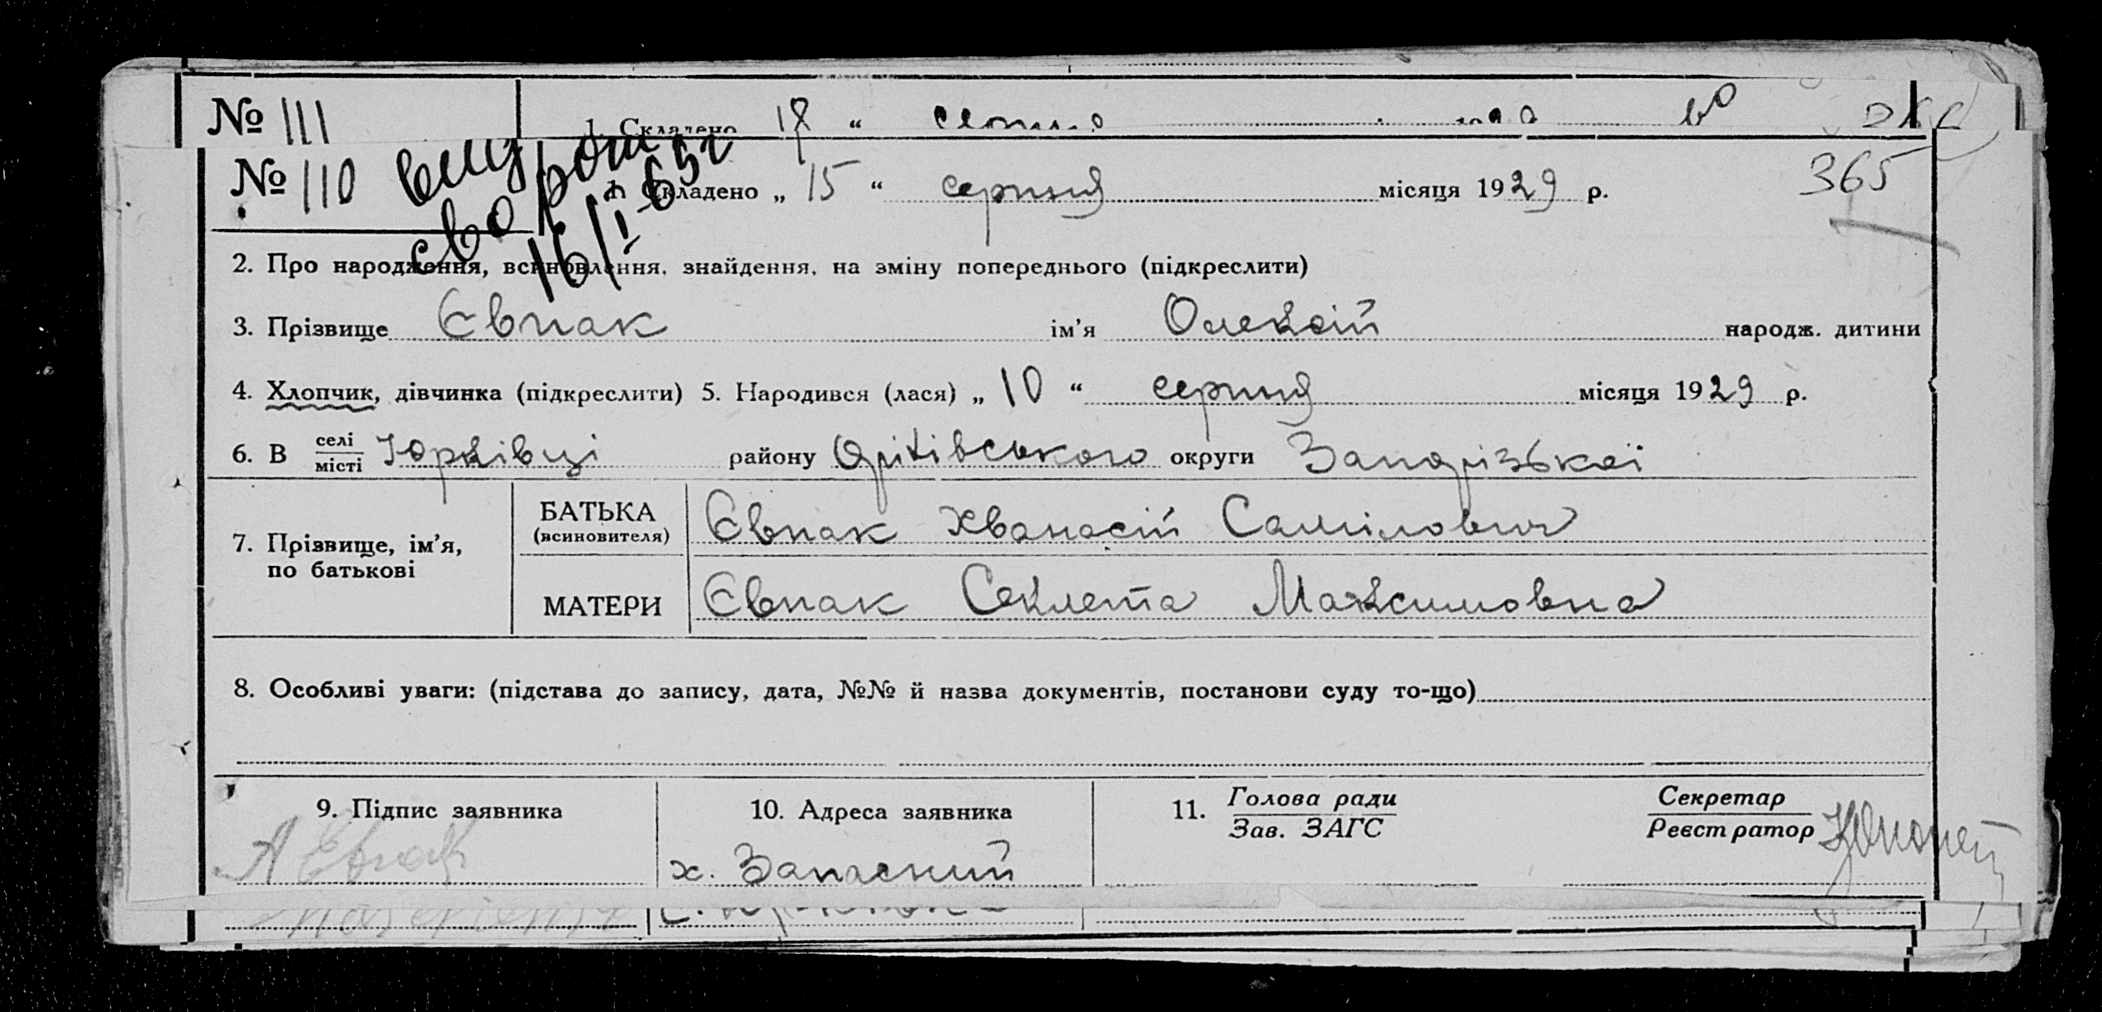 № 111
1. Складено 17 "
№ 110
видано
свод рот
16/I-63г
1. Складено „ 15 “ серпня місяця 1929 р.
365
2. Про народження, всиновлення, знайдення, на зміну попереднього (підкреслити)
3. Прізвище Євпак ім’я Олексій народж. дитини
4. Хлопчик, дівчинка (підкреслити) 5. Народився (лася) „ 10 “ серпня місяця 1929 р.
6. В селі/місті Юрківці району Оріхівського округи Запорізької
7. Прізвище, ім’я, по батькові
БАТЬКА (всиновителя) Євпак Хванасій Самілович
МАТЕРИ Євпак Секлета Максимовна
8. Особливі уваги: (підстава до запису, дата, №№ й назва документів, постанови суду то-що)
9. Підпис заявника 10. Адреса заявника 11. Голова ради / Зав. ЗАГС Секретар / Реєстратор
А Євпак х. Запасний